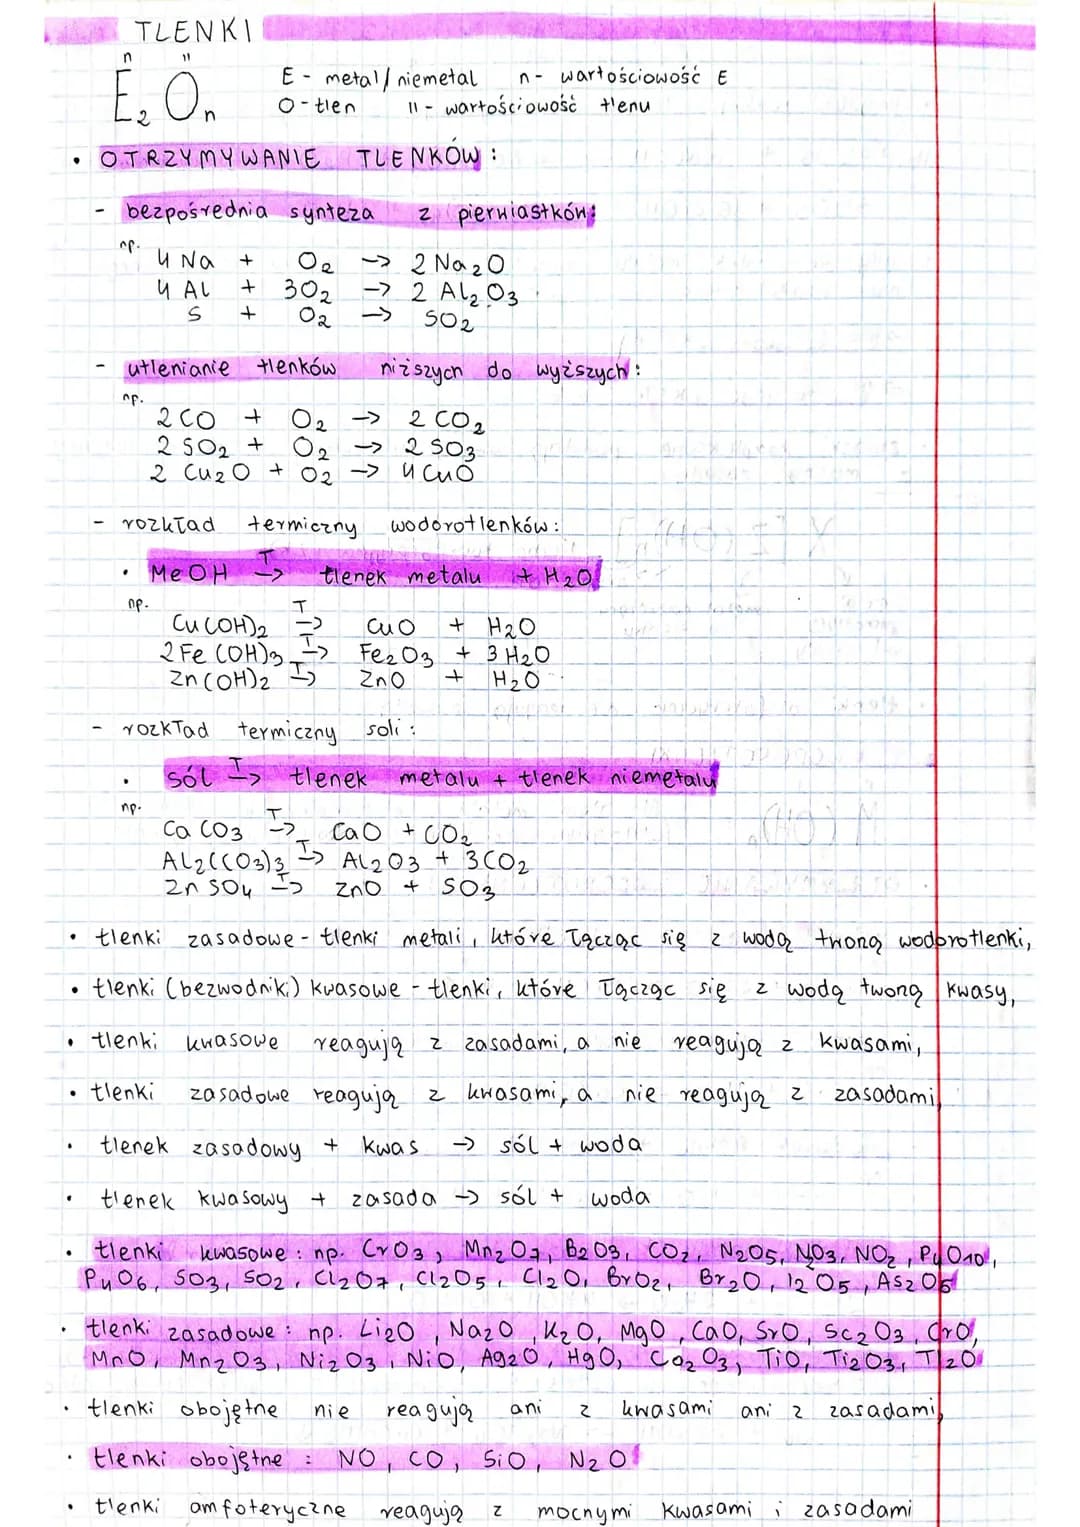 TLENKI
n II
E₂On E - metal/niemetal n - wartościowość E
O - tlen II - wartościowość tlenu
• OTRZYMYWANIE TLENKÓW:
- bezpośrednia synteza z pierwiastków:
np.
4 Na + O₂ -> 2 Na₂O
4 Al + 3O₂ -> 2 Al₂O₃
S + O₂ -> SO₂
- utlenianie tlenków niższych do wyższych:
np.
2 CO + O₂ -> 2 CO₂
2 SO₂ + O₂ -> 2 SO₃
2 Cu₂O + O₂ -> 4 CuO
- rozkład termiczny wodorotlenków:
• MeOH T-> tlenek metalu + H₂O
np.
Cu(OH)₂ T-> CuO + H₂O
2 Fe(OH)₃ T-> Fe₂O₃ + 3 H₂O
Zn(OH)₂ T-> ZnO + H₂O
- rozkład termiczny soli:
• sól T-> tlenek metalu + tlenek niemetalu
np.
CaCO₃ T-> CaO + CO₂
Al₂(CO₃)₃ T-> Al₂O₃ + 3CO₂
ZnSO₄ T-> ZnO + SO₃
• tlenki zasadowe - tlenki metali, które łącząc się z wodą tworzą wodorotlenki,
• tlenki (bezwodniki) kwasowe - tlenki, które łącząc się z wodą tworzą kwasy,
• tlenki kwasowe reagują z zasadami, a nie reagują z kwasami,
• tlenki zasadowe reagują z kwasami, a nie reagują z zasadami,
• tlenek zasadowy + kwas -> sól + woda
• tlenek kwasowy + zasada -> sól + woda
• tlenki kwasowe: np. CrO₃, Mn₂O₇, B₂O₃, CO₂, N₂O₅, NO₃, NO₂, P₄O₁₀,
P₄O₆, SO₃, SO₂, Cl₂O₇, Cl₂O₅, Cl₂O, BrO₂, Br₂O, I₂O₅, As₂O₅
• tlenki zasadowe: np. Li₂O, Na₂O, K₂O, MgO, CaO, SrO, Sc₂O₃, CrO,
MnO, Mn₂O₃, Ni₂O₃, NiO, Ag₂O, HgO, Co₂O₃, TiO, Ti₂O₃, Tl₂O
• tlenki obojętne nie reagują ani z kwasami ani z zasadami,
• tlenki obojętne: NO, CO, SiO, N₂O
• tlenki amfoteryczne reagują z mocnymi kwasami i zasadami